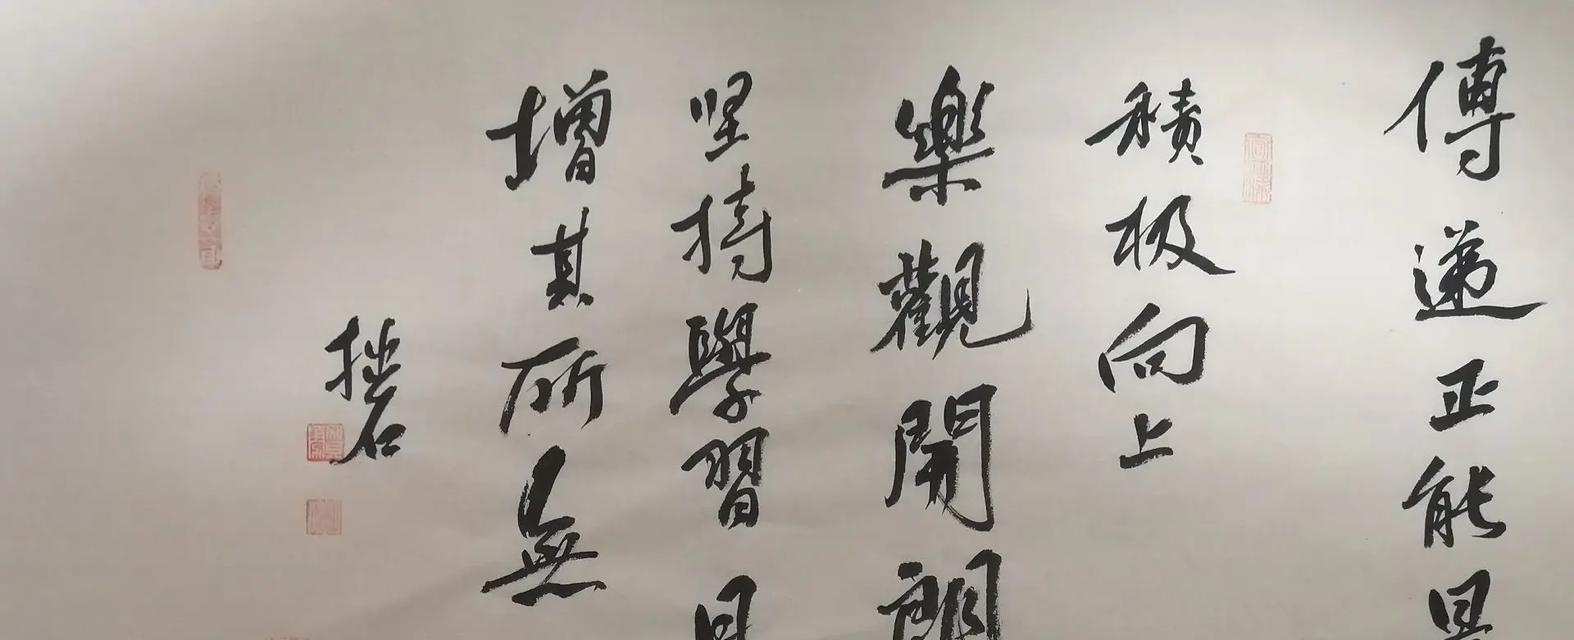 傳递正能量
積极向上
樂觀開朗
坚持學習
增其所無
拙石